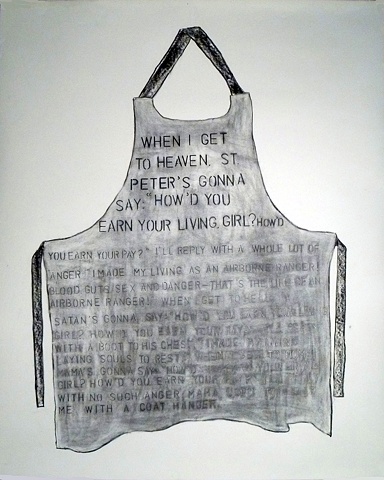 WHEN I GET
TO HEAVEN, ST
PETER'S GONNA
SAY: "HOW'D YOU
EARN YOUR LIVING, GIRL? HOW'D
YOU EARN YOUR PAY?" I'LL REPLY WITH A WHOLE LOT OF
ANGER "I MADE MY LIVING AS AN AIRBORNE RANGER!
BLOOD, GUTS, SEX AND DANGER-THAT'S THE LIFE OF AN
AIRBORNE RANGER! WHEN I GET TO HELL,
SATAN'S GONNA SAY: "HOW'D YOU EARN YOUR LIVING
GIRL? HOW'D YOU EARN YOUR
WITH A BOOT TO HIS CHEST "I MADE MY
LAYING SOULS TO REST!"
MAMA'S GONNA SAY: HOW'D
GIRL? HOW'D YOU EARN YOUR
WITH NO SUCH ANGER MAMA
ME WITH A COAT HANGER